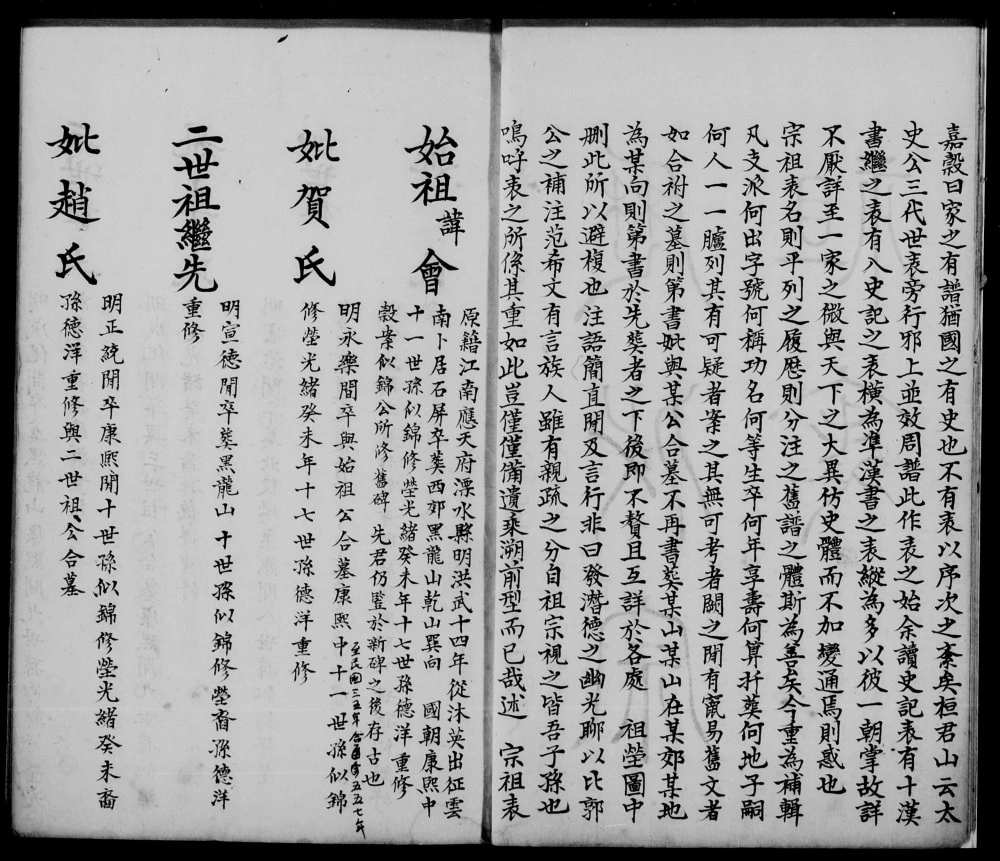 嘉穀曰家之有譜猶國之有史也不有表以序次之紊矣桓君山云太
史公三代世表旁行邪上並效周譜此作表之始余讀史記表有十漢
書繼之表有八史記之表橫為準漢書之表縱為多以彼一朝掌故詳
不厭詳至一家之微與天下之大異仿史體而不加變通焉則惑也
宗祖表名則平列之履歷則分注之舊譜之體斯為善矣今重為補輯
凡支派何出字號何稱功名何等生卒何年享壽何算扦葬何地子嗣
何人一一臚列其有可疑者案之其無可考者闕之間有竄易舊文者
如合祔之墓則第書妣與某公合墓不再書葬某山某山在某郊某地
為某向則第書於先葬者之下後即不贅且互詳於各處 祖塋圖中
刪此所以避複也注語簡直間及言行非曰發潛德之幽光聊以比郭
公之補注范希文有言族人雖有親疏之分自祖宗視之皆吾子孫也
嗚呼表之所係其重如此豈僅僅備遺乘溯前型而已哉述 宗祖表
始祖諱會
原籍江南應天府溧水縣明洪武十四年從沐英出征雲
南卜居石屏卒葬西郊黑龍山乾山巽向 國朝康熙中
十一世孫似錦修塋光緒癸未年十七世孫德洋重修
穀案似錦公所修舊碑 先君仍豎於新碑之後存古也
至民國三五年合五五七年
妣賀氏
明永樂間卒與始祖公合墓康熙中十一世孫似錦
修塋光緒癸未年十七世孫德洋重修
二世祖繼先
明宣德間卒葬黑龍山十世孫似錦修塋裔孫德洋
重修
妣趙氏
明正統間卒康熙間十世孫似錦修塋光緒癸未裔
孫德洋重修與二世祖公合墓